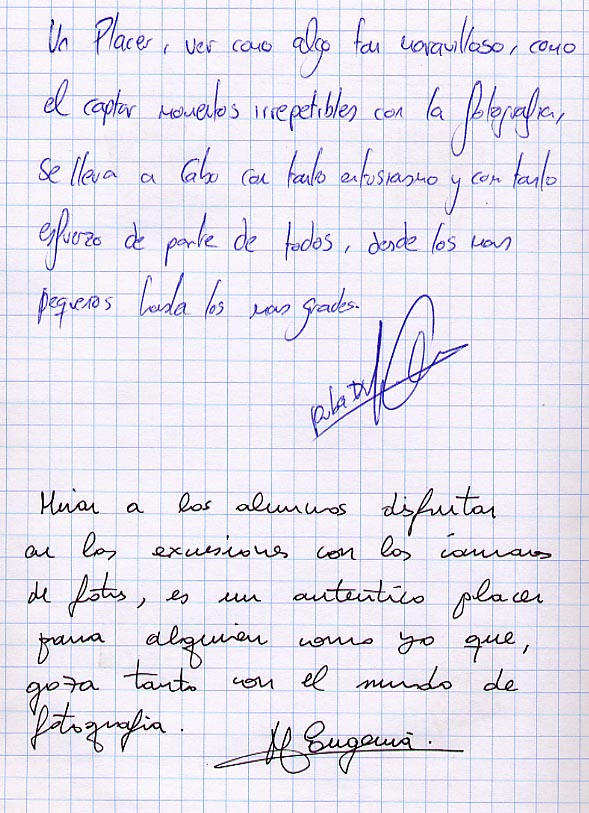 Un Placer, ver como algo tan maravilloso, como
el captar momentos irrepetibles con la fotografia,
se lleva a Cabo con tanto entusiasmo y con tanto
esfuerzo de parte de todos, desde los mas
pequeños hasta los mas grades.
Mirar a los alumnos disfrutar
en las excursiones con las camaras
de fotos, es un autentico placer
para alguien como yo que,
goza tanto con el mundo de
fotografia.
Mª Eugenia.